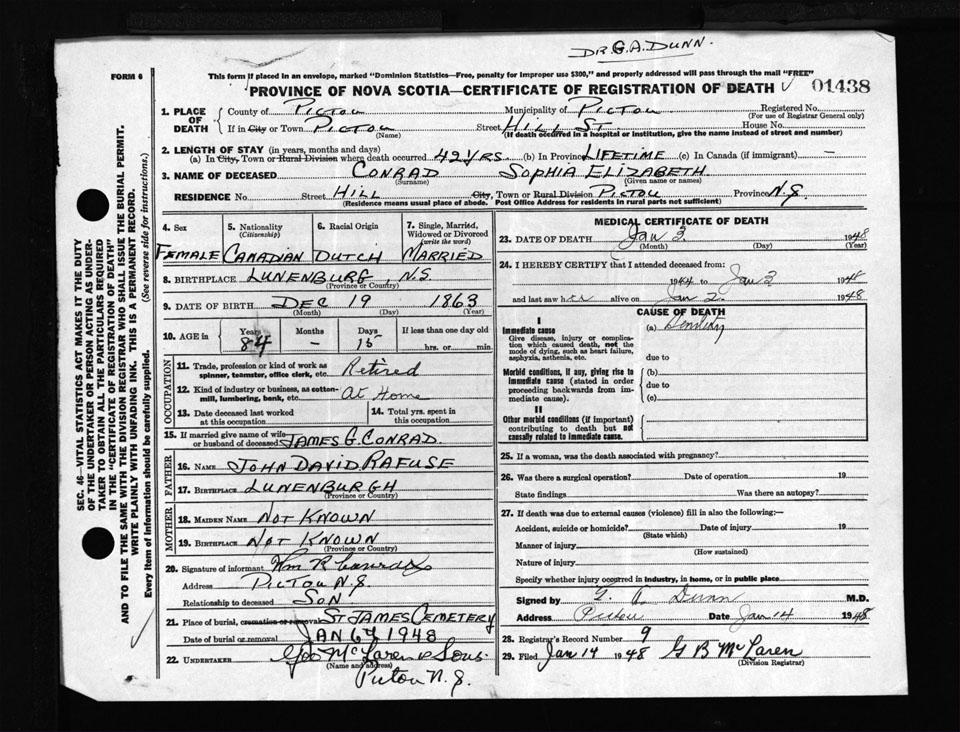 DR. G. A. DUNN.
FORM 6
This form if placed in an envelope, marked "Dominion Statistics—Free, penalty for improper use $300," and properly addressed will pass through the mail "FREE"
PROVINCE OF NOVA SCOTIA—CERTIFICATE OF REGISTRATION OF DEATH
01438
1. PLACE OF DEATH
County of PICTOU Municipality of PICTOU Registered No.
(For use of Registrar General only)
If in City or Town PICTOU Street HILL ST. House No.
(Name) (If death occurred in a hospital or institution, give the name instead of street and number)
2. LENGTH OF STAY (in years, months and days)
(a) In City, Town or Rural Division where death occurred 42 YRS (b) In Province LIFETIME (c) In Canada (if immigrant) —
3. NAME OF DECEASED CONRAD SOPHIA ELIZABETH.
(Surname) (Given name or names)
RESIDENCE No. Street HILL City, Town or Rural Division PICTOU Province N.S.
(Residence means usual place of abode. Post Office Address for residents in rural parts not sufficient)
4. Sex 5. Nationality (Citizenship) 6. Racial Origin 7. Single, Married, Widowed or Divorced (write the word)
FEMALE CANADIAN DUTCH MARRIED
8. BIRTHPLACE LUNENBURG, N.S.
(Province or Country)
9. DATE OF BIRTH DEC 19 1863
(Month) (Day) (Year)
10. AGE in Years Months Days If less than one day old
84 — 15 hrs. or min.
OCCUPATION
11. Trade, profession or kind of work as spinner, teamster, office clerk, etc. Retired
12. Kind of industry or business, as cotton-mill, lumbering, bank, etc. At Home
13. Date deceased last worked at this occupation 14. Total yrs. spent in this occupation
15. If married give name of wife or husband of deceased JAMES G. CONRAD.
FATHER
16. NAME JOHN DAVID RAFUSE
17. BIRTHPLACE LUNENBURGH
(Province or Country)
MOTHER
18. MAIDEN NAME NOT KNOWN
19. BIRTHPLACE NOT KNOWN
(Province or Country)
20. Signature of informant Wm R Conrad
Address PICTOU N.S.
Relationship to deceased SON
21. Place of burial, cremation or removal ST JAMES CEMETERY
Date of burial or removal JAN 6TH 1948
22. UNDERTAKER Geo McLaren & Sons.
(Name and address)
Pictou N.S.
MEDICAL CERTIFICATE OF DEATH
23. DATE OF DEATH Jan 3 1948
(Month) (Day) (Year)
24. I HEREBY CERTIFY that I attended deceased from:
1944 to Jan 3 1948
and last saw her alive on Jan 2. 1948
CAUSE OF DEATH
I
Immediate cause
Give disease, injury or complication which caused death, not the mode of dying, such as heart failure, asphyxia, asthenia, etc.
(a) Senility
due to
Morbid conditions, if any, giving rise to immediate cause (stated in order proceeding backwards from immediate cause).
(b)
due to
(c)
II
Other morbid conditions (if important) contributing to death but not causally related to immediate cause.
25. If a woman, was the death associated with pregnancy?
26. Was there a surgical operation? Date of operation 19
State findings Was there an autopsy?
27. If death was due to external causes (violence) fill in also the following:—
Accident, suicide or homicide? Date of injury 19
(State which)
Manner of injury
(How sustained)
Nature of injury
Specify whether injury occurred in industry, in home, or in public place
Signed by G. A. Dunn M.D.
Address Pictou Date Jan 14 1948
28. Registrar's Record Number 9
29. Filed Jan 14 1948 G B McLaren
(Division Registrar)
SEC. 46—VITAL STATISTICS ACT MAKES IT THE DUTY
OF THE UNDERTAKER OR PERSON ACTING AS UNDER-
TAKER TO OBTAIN ALL THE PARTICULARS REQUIRED
IN THE "CERTIFICATE OF REGISTRATION OF DEATH"
AND TO FILE THE SAME WITH THE DIVISION REGISTRAR WHO SHALL ISSUE THE BURIAL PERMIT.
WRITE PLAINLY WITH UNFADING INK. THIS IS A PERMANENT RECORD.
Every item of information should be carefully supplied. (See reverse side for instructions.)